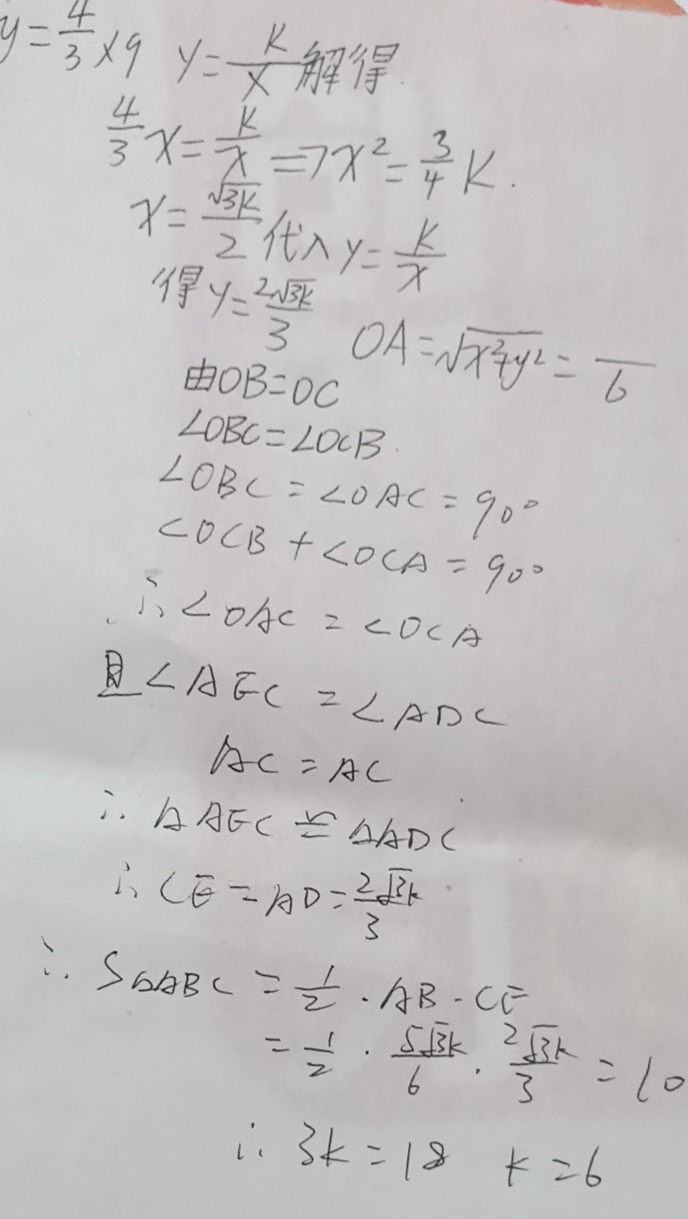 y=4/3 x9 y=K/x 解得
4/3 x=K/x =7x²=3/4 K.
x=√3K/2 代入y=K/x
得y=2√3k/3 OA=√x²+y²=—/6
由OB=OC
∠OBC=∠OCB.
∠OBC=∠OAC=90°
∠OCB+∠OCA=90°
∴∠OAC=∠OCA
且∠AEC=∠ADC
AC=AC
∴△AEC≌△ADC
∴CE=AD=2√3k/3
∴S△ABC=1/2·AB·CE
=1/2·5√3k/6·2√3k/3=10
∴3k=18 k=6